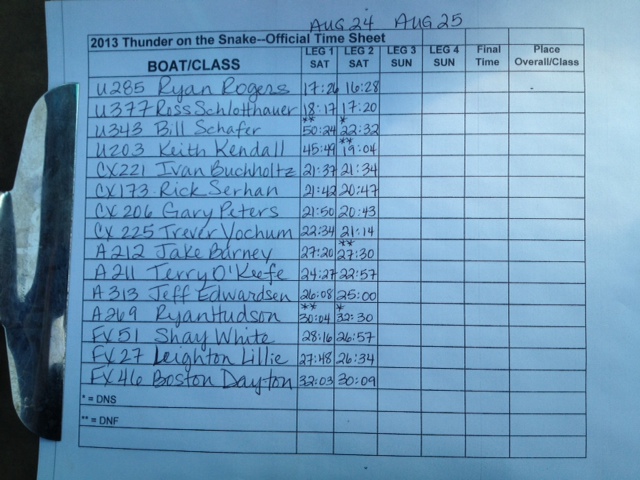 AUG 24 AUG 25
2013 Thunder on the Snake--Official Time Sheet
BOAT/CLASS LEG 1 SAT LEG 2 SAT LEG 3 SUN LEG 4 SUN Final Time Place Overall/Class
U285 Ryan Rogers 17:26 16:28
U377 Ross Schlotthauer 18:17 17:20
U343 Bill Schafer ** 50:24 * 22:32
U203 Keith Kendall 45:49 ** 19:04
CX221 Ivan Buchholtz 21:37 21:34
CX173 Rick Serhan 21:42 20:47
CX206 Gary Peters 21:50 20:43
CX225 Trever Yochum 22:34 21:14
A212 Jake Barney 27:20 ** 27:30
A211 Terry O'Keefe 24:27 22:57
A313 Jeff Edwardsen 26:08 25:00
A269 Ryan Hudson ** 30:04 * 32:30
FX51 Shay White 28:16 26:57
FX27 Leighton Lillie 27:48 26:34
FX46 Boston Dayton 32:03 30:09
* = DNS
** = DNF